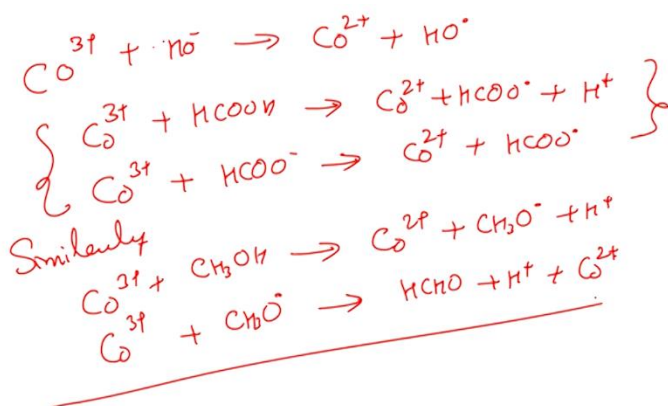 Co³⁺ + HO⁻ → Co²⁺ + HO•
{ Co³⁺ + HCOOH → Co²⁺ + HCOO• + H⁺ }
Co³⁺ + HCOO⁻ → Co²⁺ + HCOO•
Similarly
Co³⁺ + CH₃OH → Co²⁺ + CH₃O• + H⁺
Co³⁺ + CH₃O• → HCHO + H⁺ + Co²⁺